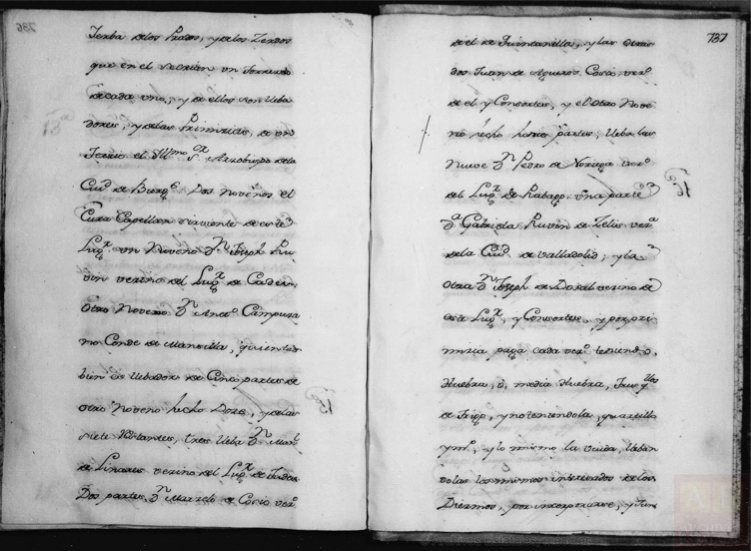 Yerba de los Prados, y de los Zerdos
que en el se crian un
de cada uno, y de ellos son lleba
dores, y de las Primicias, de un
Tercio el Yllmo Sr Arzobispo de la
Ciud de Burgs Dos Novenos el
Cura Capellan sirviente de este
Lugr un Noveno Dn Joseph Ru
vin vecino del Lugr de
Otro Noveno Dn Anto Campuza
no Conde de Mansilla, quien tam
bien es llebador de Cinco partes de
otro Noveno hecho Doze, y de las
siete restantes, tres lleba Dn Manl
de Linares vecino del Lugr de
Dos partes Dn Marcelo de Cosio vezo
737
de el de Quintanilla, y las otras
dos Juan de Agueros Cosio, vezo
de el y Consortes, y el otro Nove
no hecho partes, lleba las
Nueve Dn Pedro de Noriega vezo
del Lugr de Rabago, una parte
Da Gabriela Ruvin de Zelis veza
de la Ciud de Valladolid, y la
otra Dn Joseph de Dosal vecino de
este Lugr, y Consortes, y por pri
micia paga cada vezo teniendo,
Huebra, o, media Huebra,
de trigo, y no teniendola, quartillo
y mo, y lo mismo la viuda, lleban
dolas los mismos interesados de los
Diezmos, por incorporarse, y